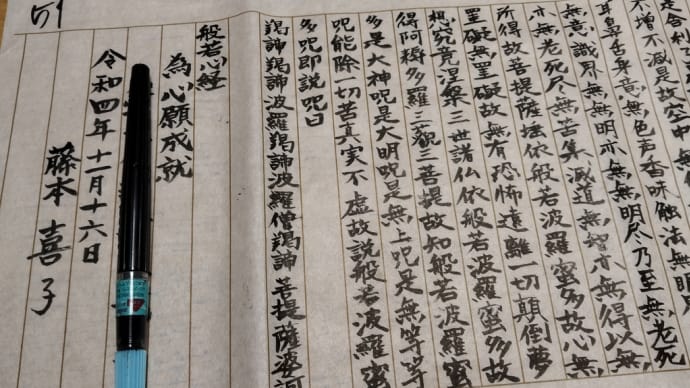 是舎利
不増不減是故空中
耳鼻舌身意無色声香味触法無眼界
無意識界無無明亦無無明尽乃至無老死
亦無老死尽無苦集滅道無智亦無得以無
所得故菩提薩埵依般若波羅蜜多故心無
罣礙無罣礙故無有恐怖遠離一切顛倒夢
想究竟涅槃三世諸仏依般若波羅蜜多故
得阿耨多羅三藐三菩提故知般若波羅蜜
多是大神呪是大明呪是無上呪是無等等
呪能除一切苦真実不虚故説般若波羅蜜
多呪即説呪曰
羯諦羯諦波羅羯諦波羅僧羯諦菩提薩婆訶
般若心経
為心願成就
令和四年十一月十六日
藤本喜子
51